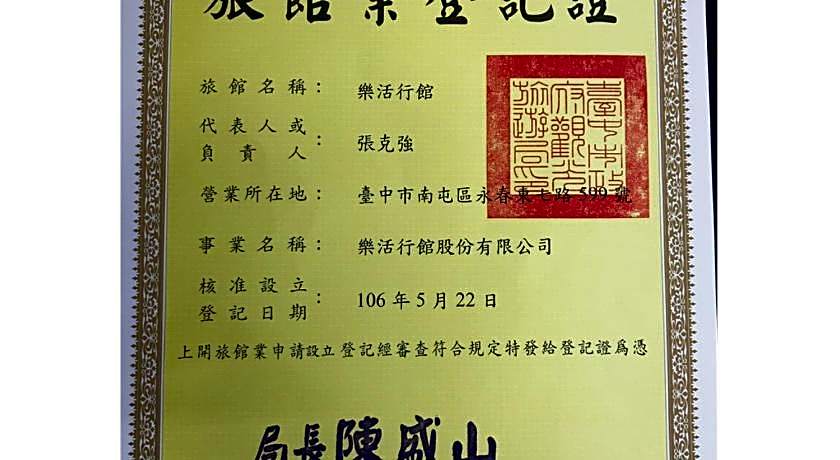 旅館業登記證
旅館名稱：樂活行館
代表人或
負責人：張克強
營業所在地：臺中市南屯區永春東七路 599 號
事業名稱：樂活行館股份有限公司
核准設立
登記日期：106 年 5 月 22 日
上開旅館業申請設立登記經審查符合規定特發給登記證為憑
臺中市政
府觀光
旅遊局印
局長陳盛山